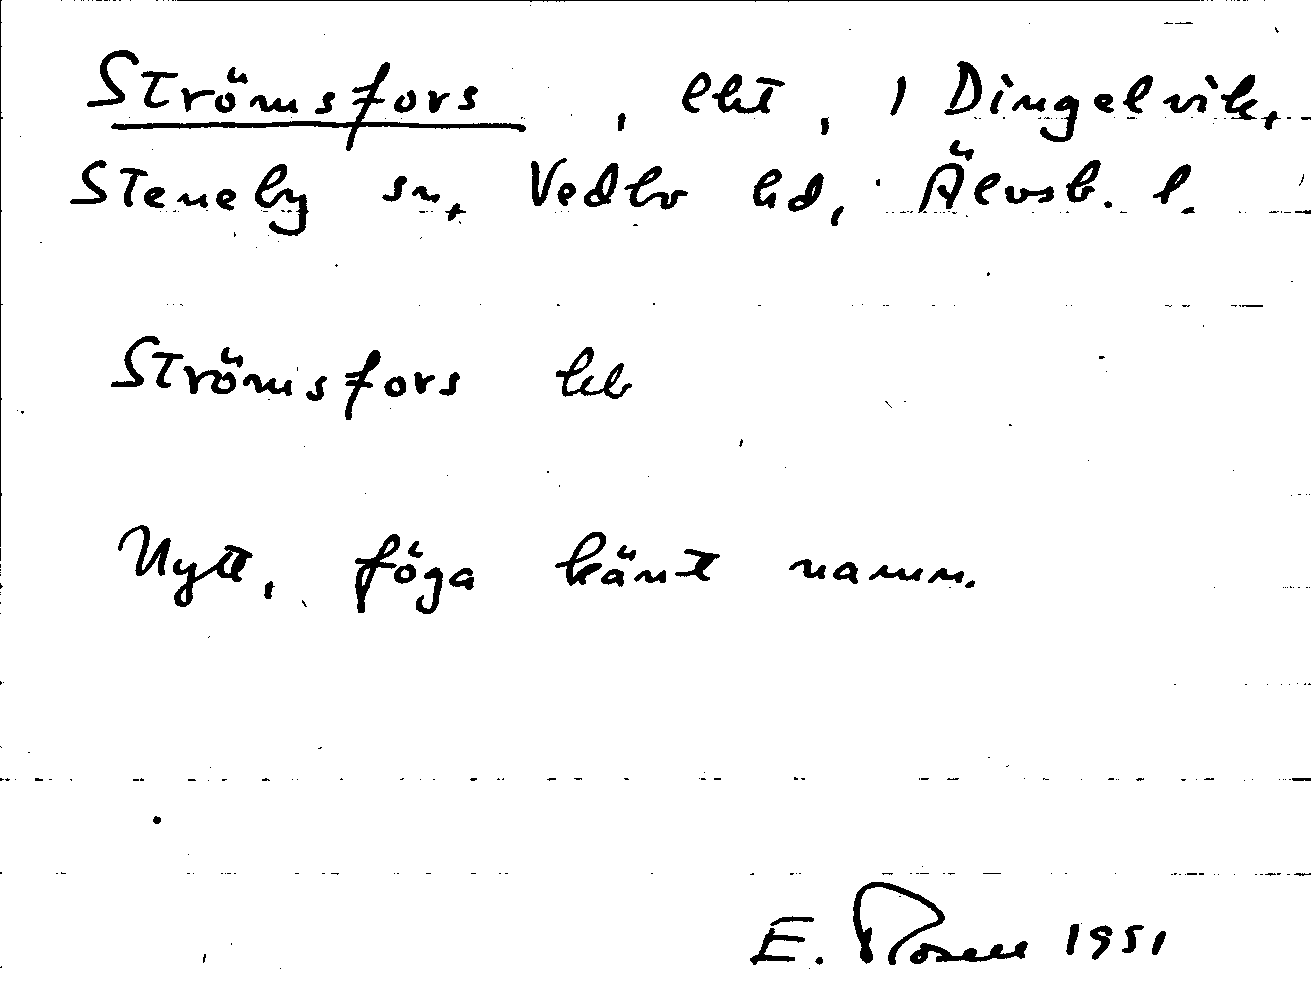 Strömsfors, lht, 1 Dingelvik,
Steneby sn, Vedbo hd, Älvsb. l.
Strömsfors
Nytt, föga känt namn.
E. Rosell 1951